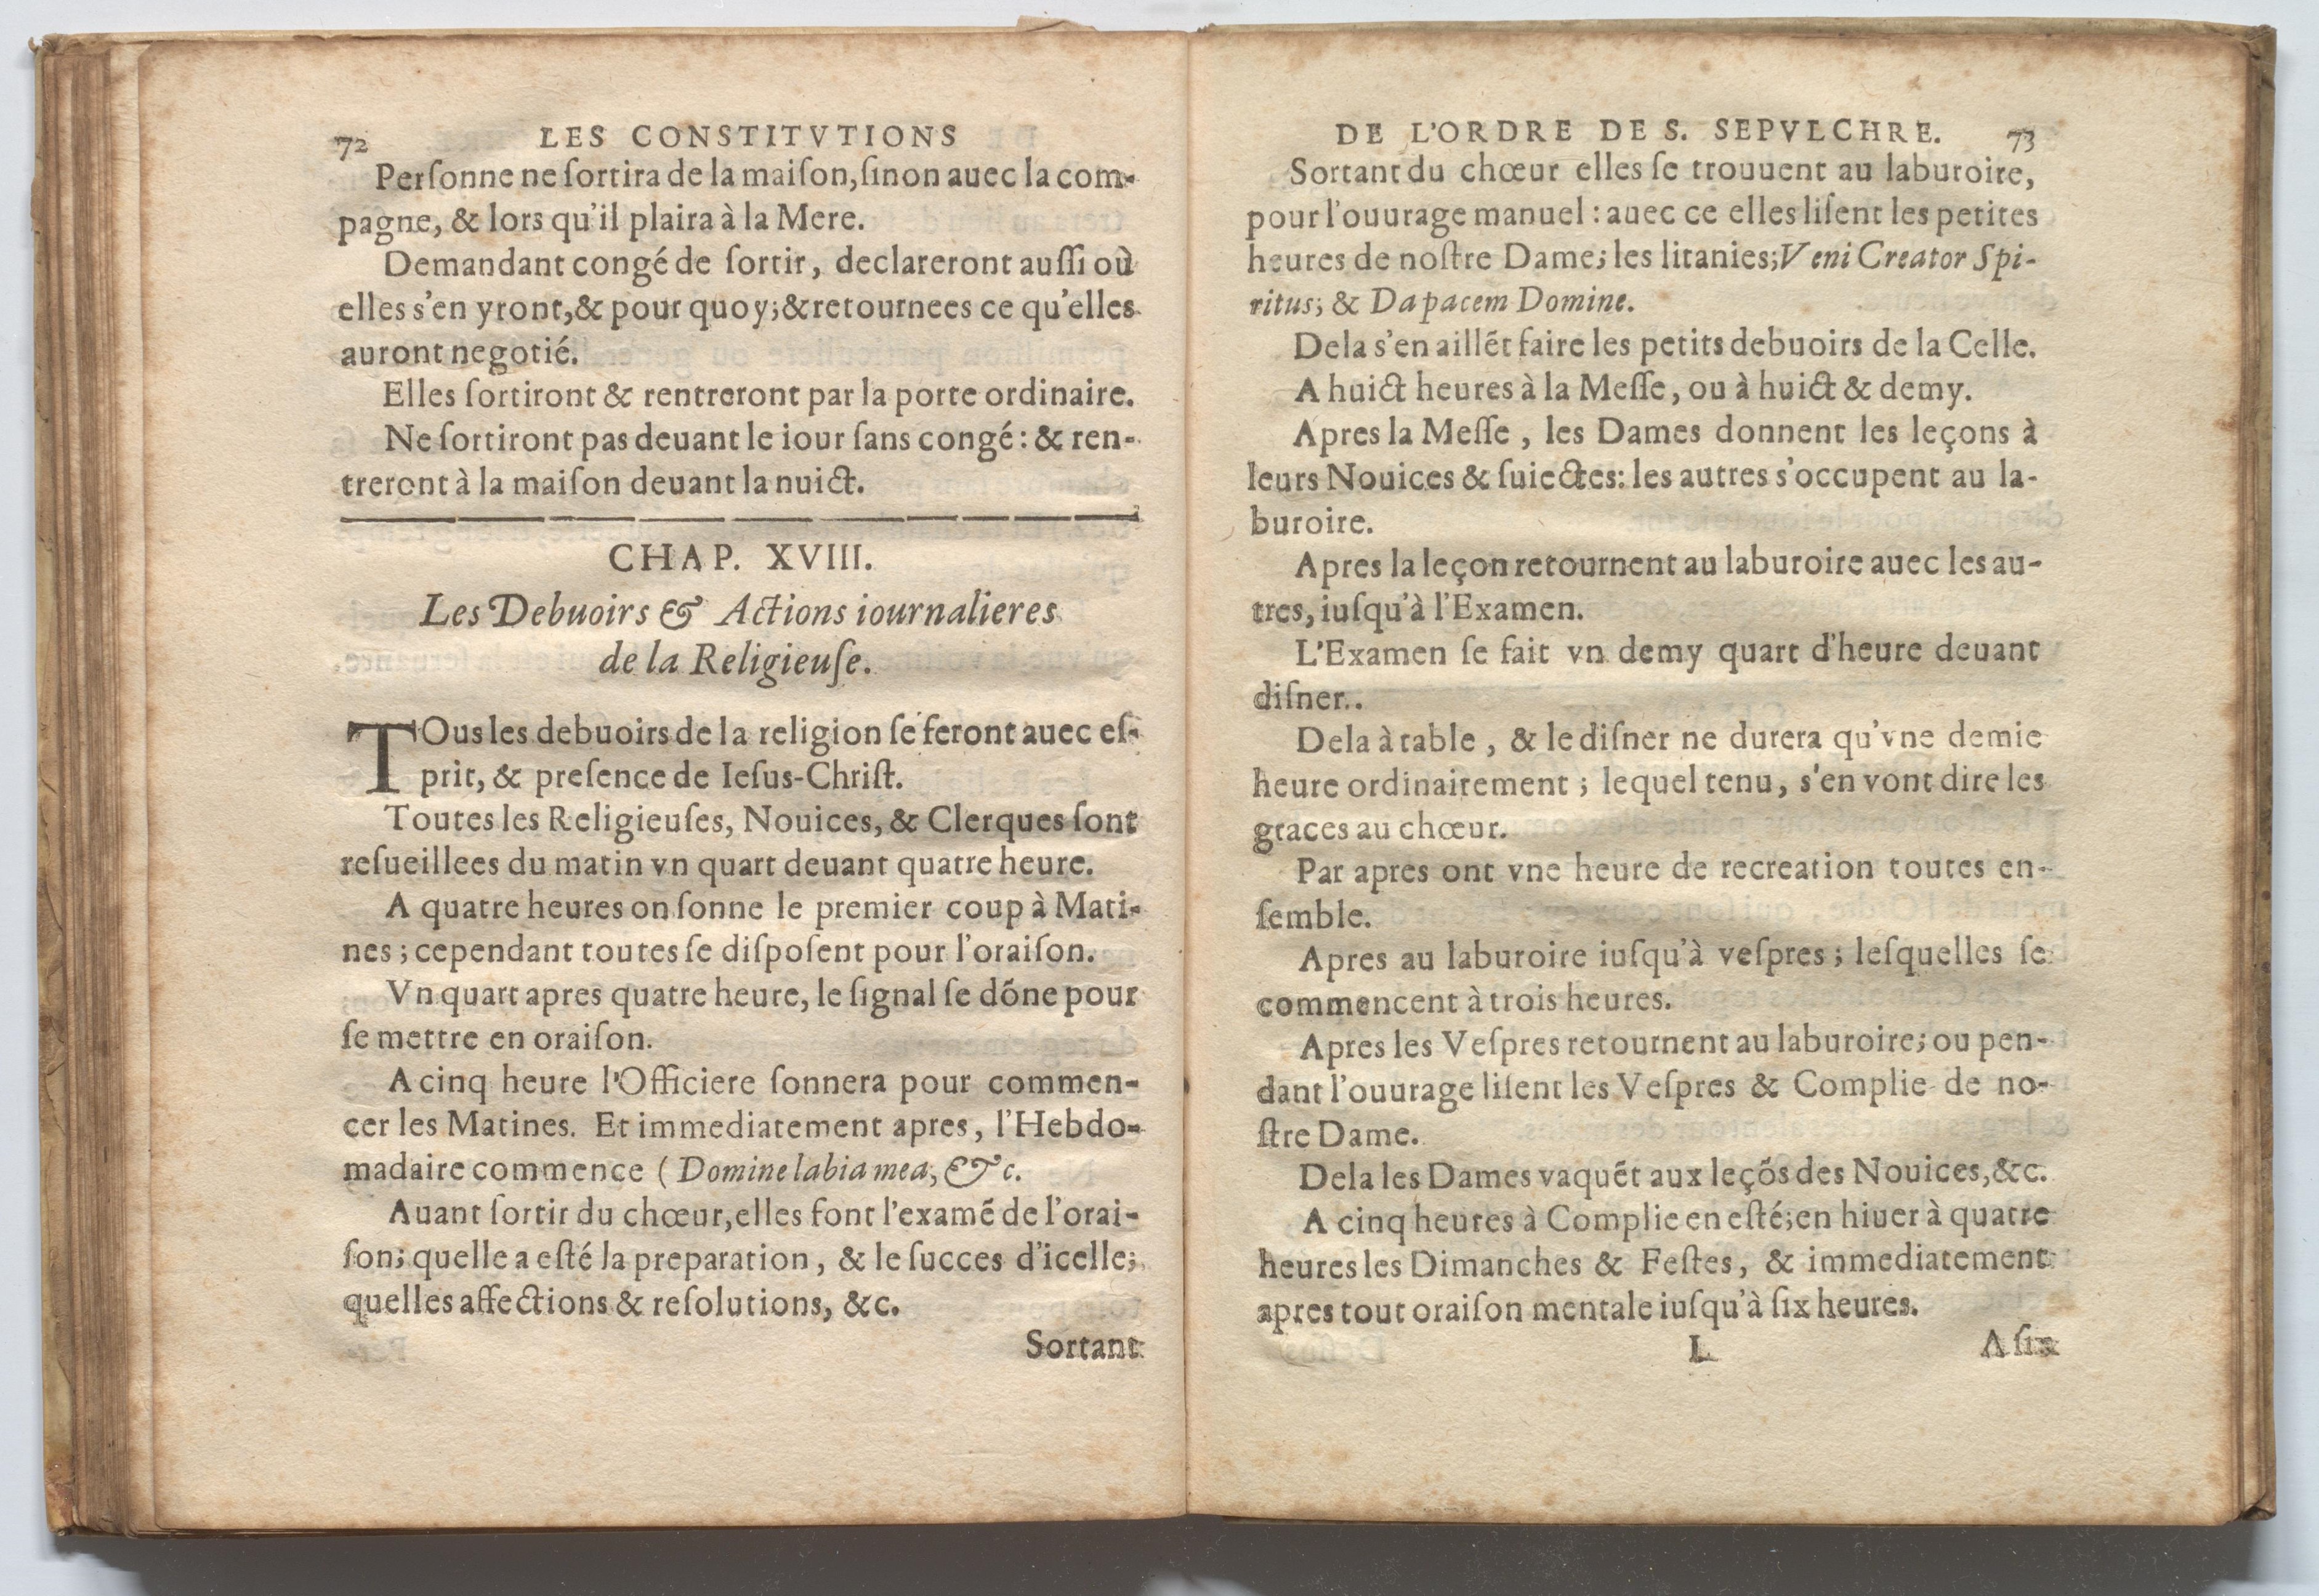 72 LES CONSTITVTIONS
Perſonne ne ſortira de la maiſon, ſinon auec la com-
pagne, & lors qu'il plaira à la Mere.
Demandant congé de ſortir, declareront auſſi où
elles s'en yront, & pour quoy; & retournees ce qu'elles
auront negotié.
Elles ſortiront & rentreront par la porte ordinaire.
Ne ſortiront pas deuant le iour ſans congé: & ren-
treront à la maiſon deuant la nuict.
CHAP. XVIII.
Les Debuoirs & Actions iournalieres
de la Religieuſe.
TOus les debuoirs de la religion ſe feront auec eſ-
prit, & preſence de Ieſus-Chriſt.
Toutes les Religieuſes, Nouices, & Clerques ſont
reſueillees du matin vn quart deuant quatre heure.
A quatre heures on ſonne le premier coup à Mati-
nes; cependant toutes ſe diſpoſent pour l'oraiſon.
Vn quart apres quatre heure, le ſignal ſe dõne pour
ſe mettre en oraiſon.
A cinq heure l'Officiere ſonnera pour commen-
cer les Matines. Et immediatement apres, l'Hebdo-
madaire commence (Domine labia mea, &c.
Auant ſortir du chœur, elles font l'examẽ de l'orai-
ſon; quelle a eſté la preparation, & le ſucces d'icelle;
quelles affections & reſolutions, &c.
Sortant
DE L'ORDRE DE S. SEPVLCHRE. 73
Sortant du chœur elles ſe trouuent au laburoire,
pour l'ouurage manuel: auec ce elles liſent les petites
heures de noſtre Dame; les litanies; Veni Creator Spi-
ritus; & Da pacem Domine.
Dela s'en aillẽt faire les petits debuoirs de la Celle.
A huict heures à la Meſſe, ou à huict & demy.
Apres la Meſſe, les Dames donnent les leçons à
leurs Nouices & ſuiectes: les autres s'occupent au la-
buroire.
Apres la leçon retournent au laburoire auec les au-
tres, iuſqu'à l'Examen.
L'Examen ſe fait vn demy quart d'heure deuant
diſner.
Dela à table, & le diſner ne durera qu'vne demie
heure ordinairement; lequel tenu, s'en vont dire les
graces au chœur.
Par apres ont vne heure de recreation toutes en-
ſemble.
Apres au laburoire iuſqu'à veſpres; leſquelles ſe
commencent à trois heures.
Apres les Veſpres retournent au laburoire; ou pen-
dant l'ouurage liſent les Veſpres & Complie de no-
ſtre Dame.
Dela les Dames vaquẽt aux leçõs des Nouices, &c.
A cinq heures à Complie en eſté; en hiuer à quatre
heures les Dimanches & Feſtes, & immediatement
apres tout oraiſon mentale iuſqu'à ſix heures.
L A ſix